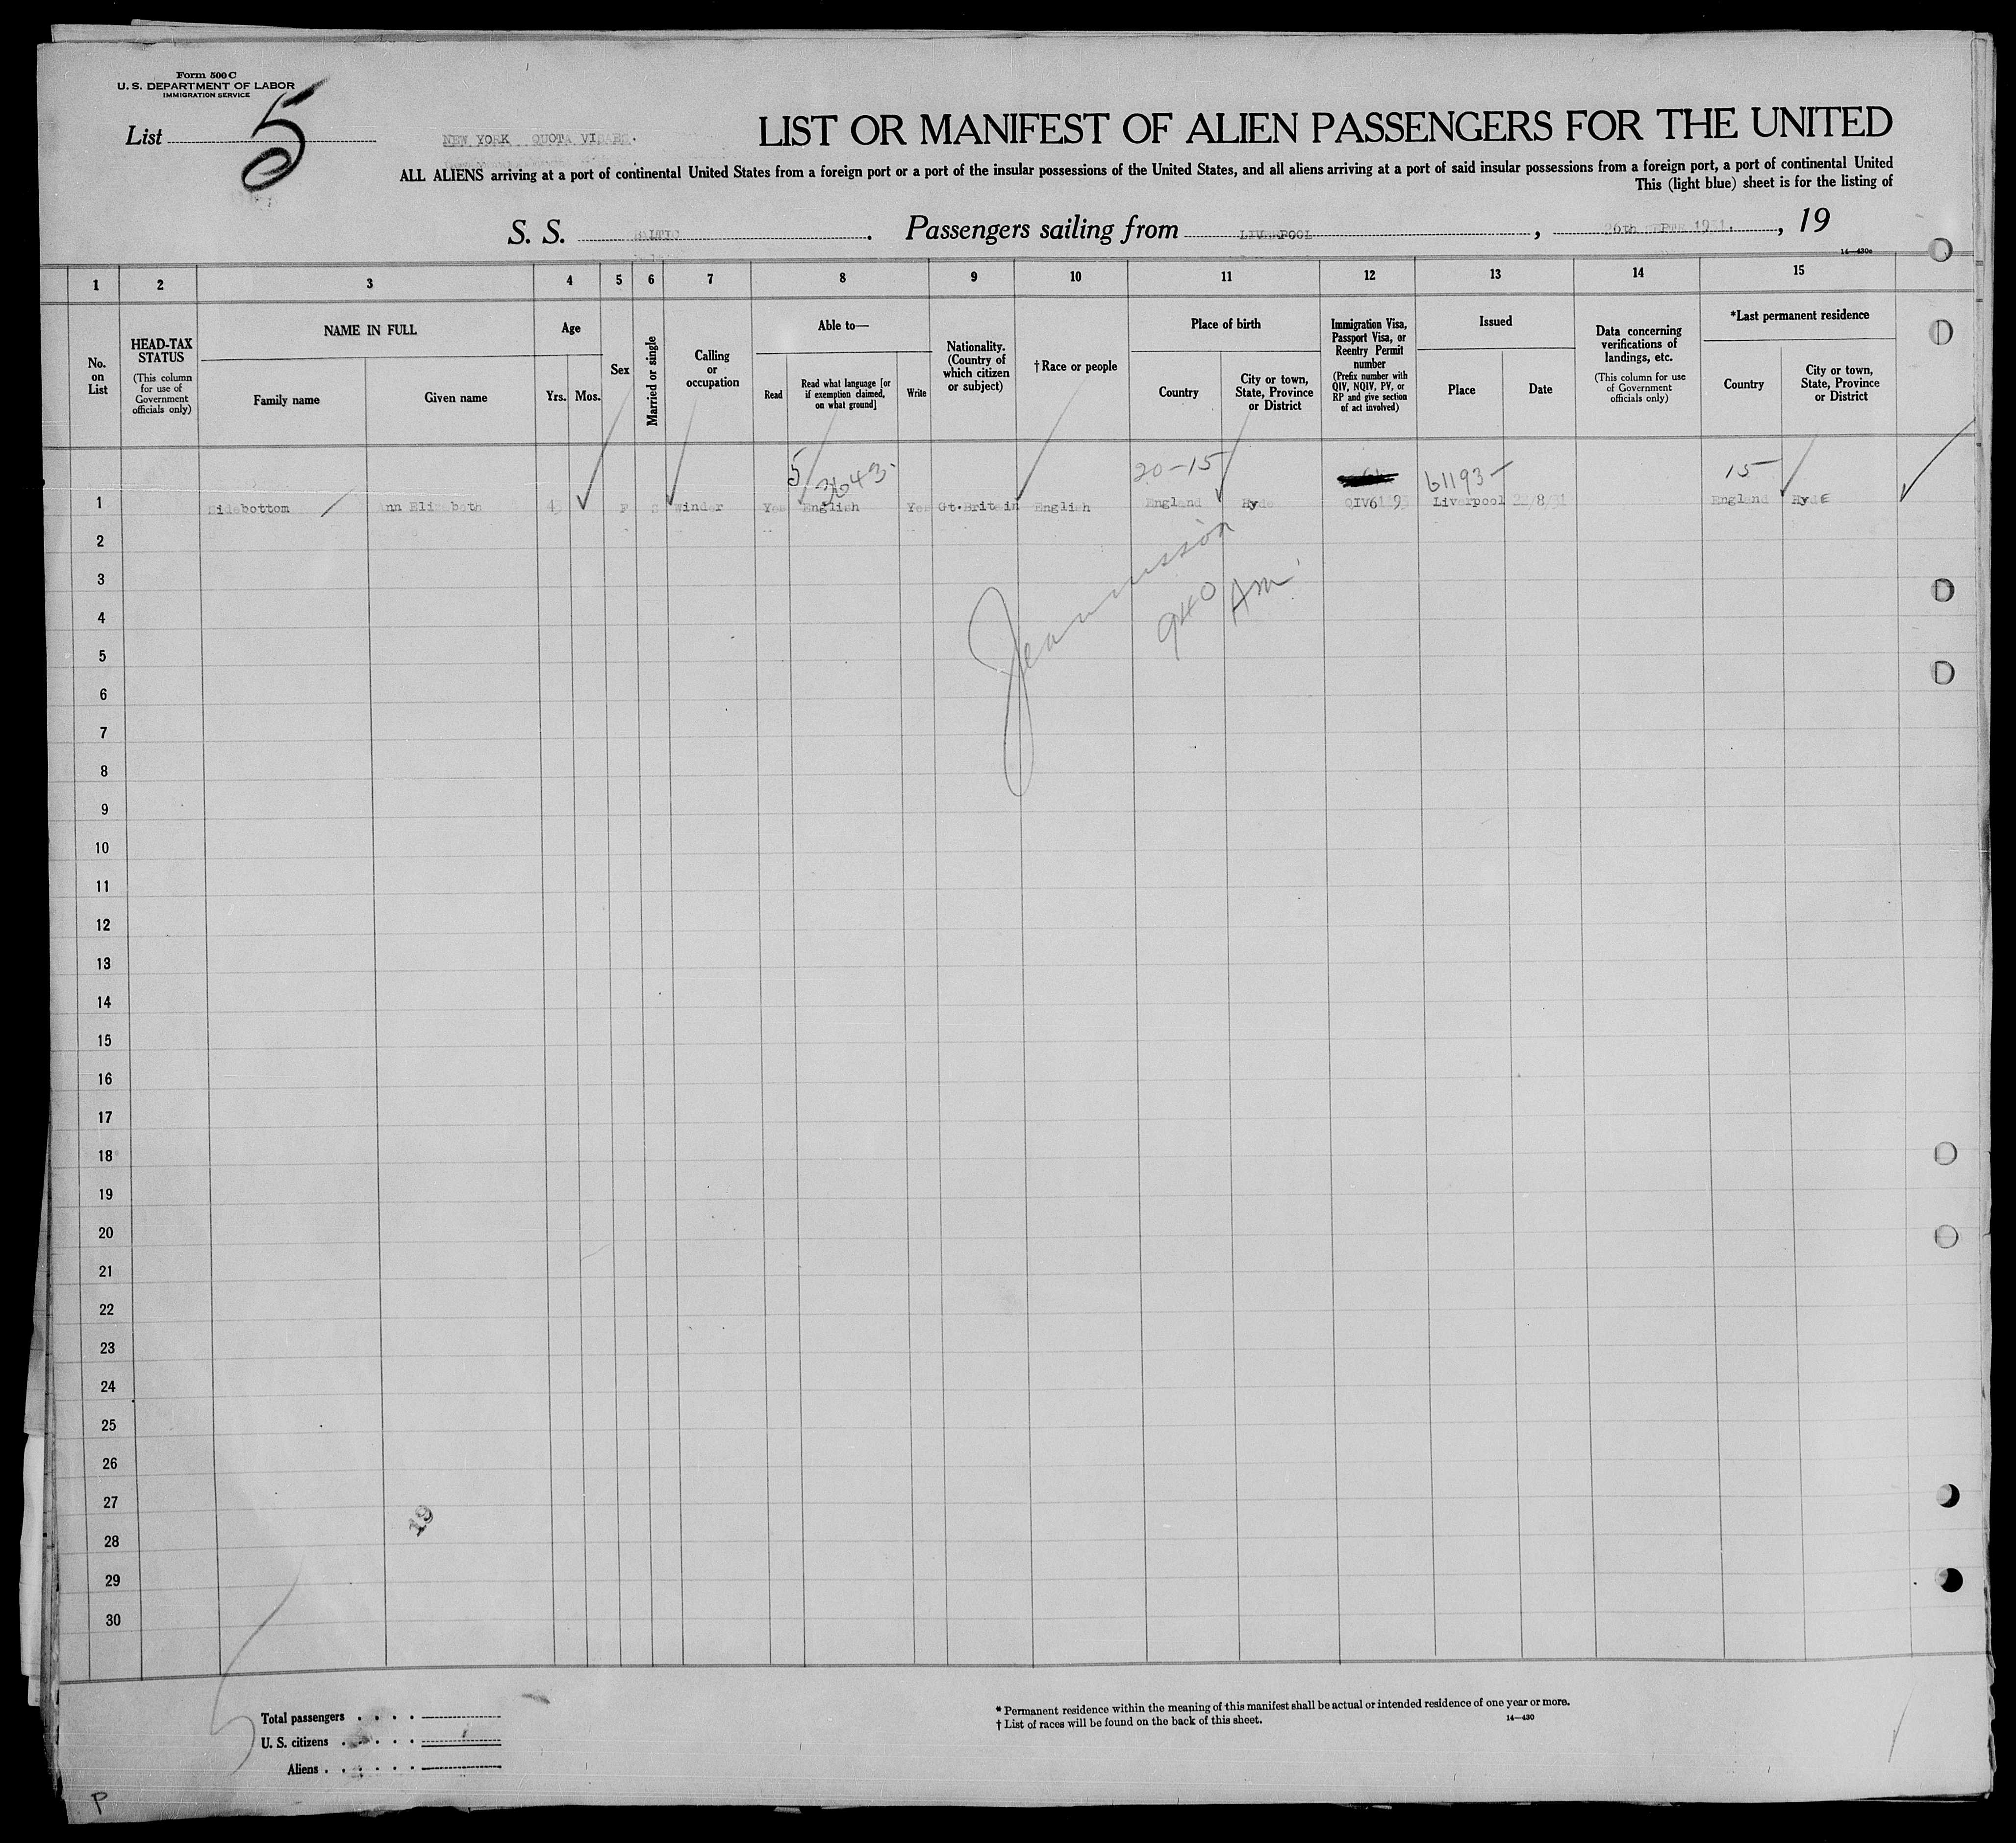 Form 500 C
U. S. DEPARTMENT OF LABOR
IMMIGRATION SERVICE
List 5
NEW YORK QUOTA VISAES.
LIST OR MANIFEST OF ALIEN PASSENGERS FOR THE UNITED
ALL ALIENS arriving at a port of continental United States from a foreign port or a port of the insular possessions of the United States, and all aliens arriving at a port of said insular possessions from a foreign port, a port of continental United
This (light blue) sheet is for the listing of
S. S. BALTIC. Passengers sailing from LIVERPOOL, 26th SEPTR 1931., 19
14—430c
1 2 3 4 5 6 7 8 9 10 11 12 13 14 15
No. on List
HEAD-TAX STATUS
(This column for use of Government officials only)
NAME IN FULL
Family name
Given name
Age
Yrs. Mos.
Sex
Married or single
Calling or occupation
Able to—
Read
Read what language [or if exemption claimed, on what ground]
Write
Nationality. (Country of which citizen or subject)
† Race or people
Place of birth
Country
City or town, State, Province or District
Immigration Visa, Passport Visa, or Reentry Permit number
(Prefix number with QIV, NQIV, PV, or RP and give section of act involved)
Issued
Place
Date
Data concerning verifications of landings, etc.
(This column for use of Government officials only)
*Last permanent residence
Country
City or town, State, Province or District
5 3643 20-15 61193- 15
1 Sidebottom Ann Elizabeth F S Winder Yes English Yes Gt.Britain English England Hyde QIV61193 Liverpool England HydE
2
3
4
940 Am
5
6
7
8
9
10
11
12
13
14
15
16
17
18
19
20
21
22
23
24
25
26
27
19
28
29
30
Total passengers . . . .
U. S. citizens . . . . .
Aliens . . . . . .
* Permanent residence within the meaning of this manifest shall be actual or intended residence of one year or more.
† List of races will be found on the back of this sheet.
14—430
P